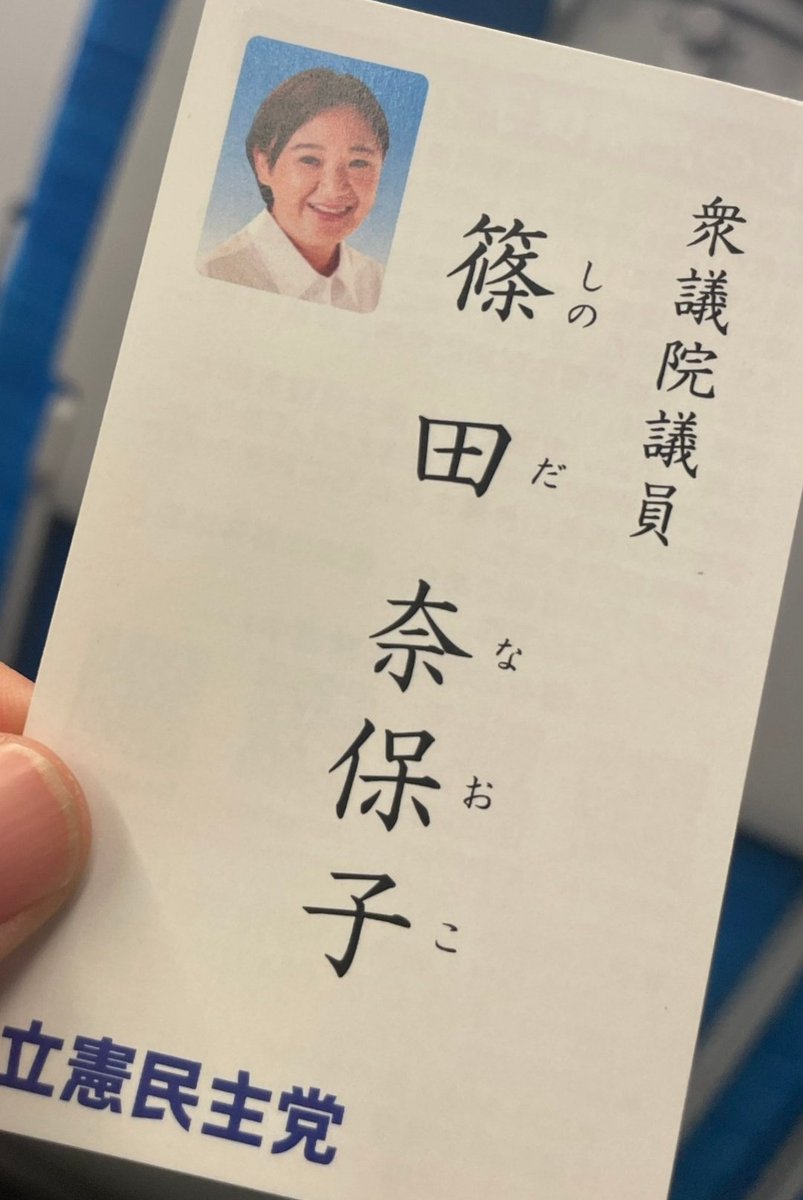 衆議院議員
篠田奈保子
しのだなおこ
立憲民主党